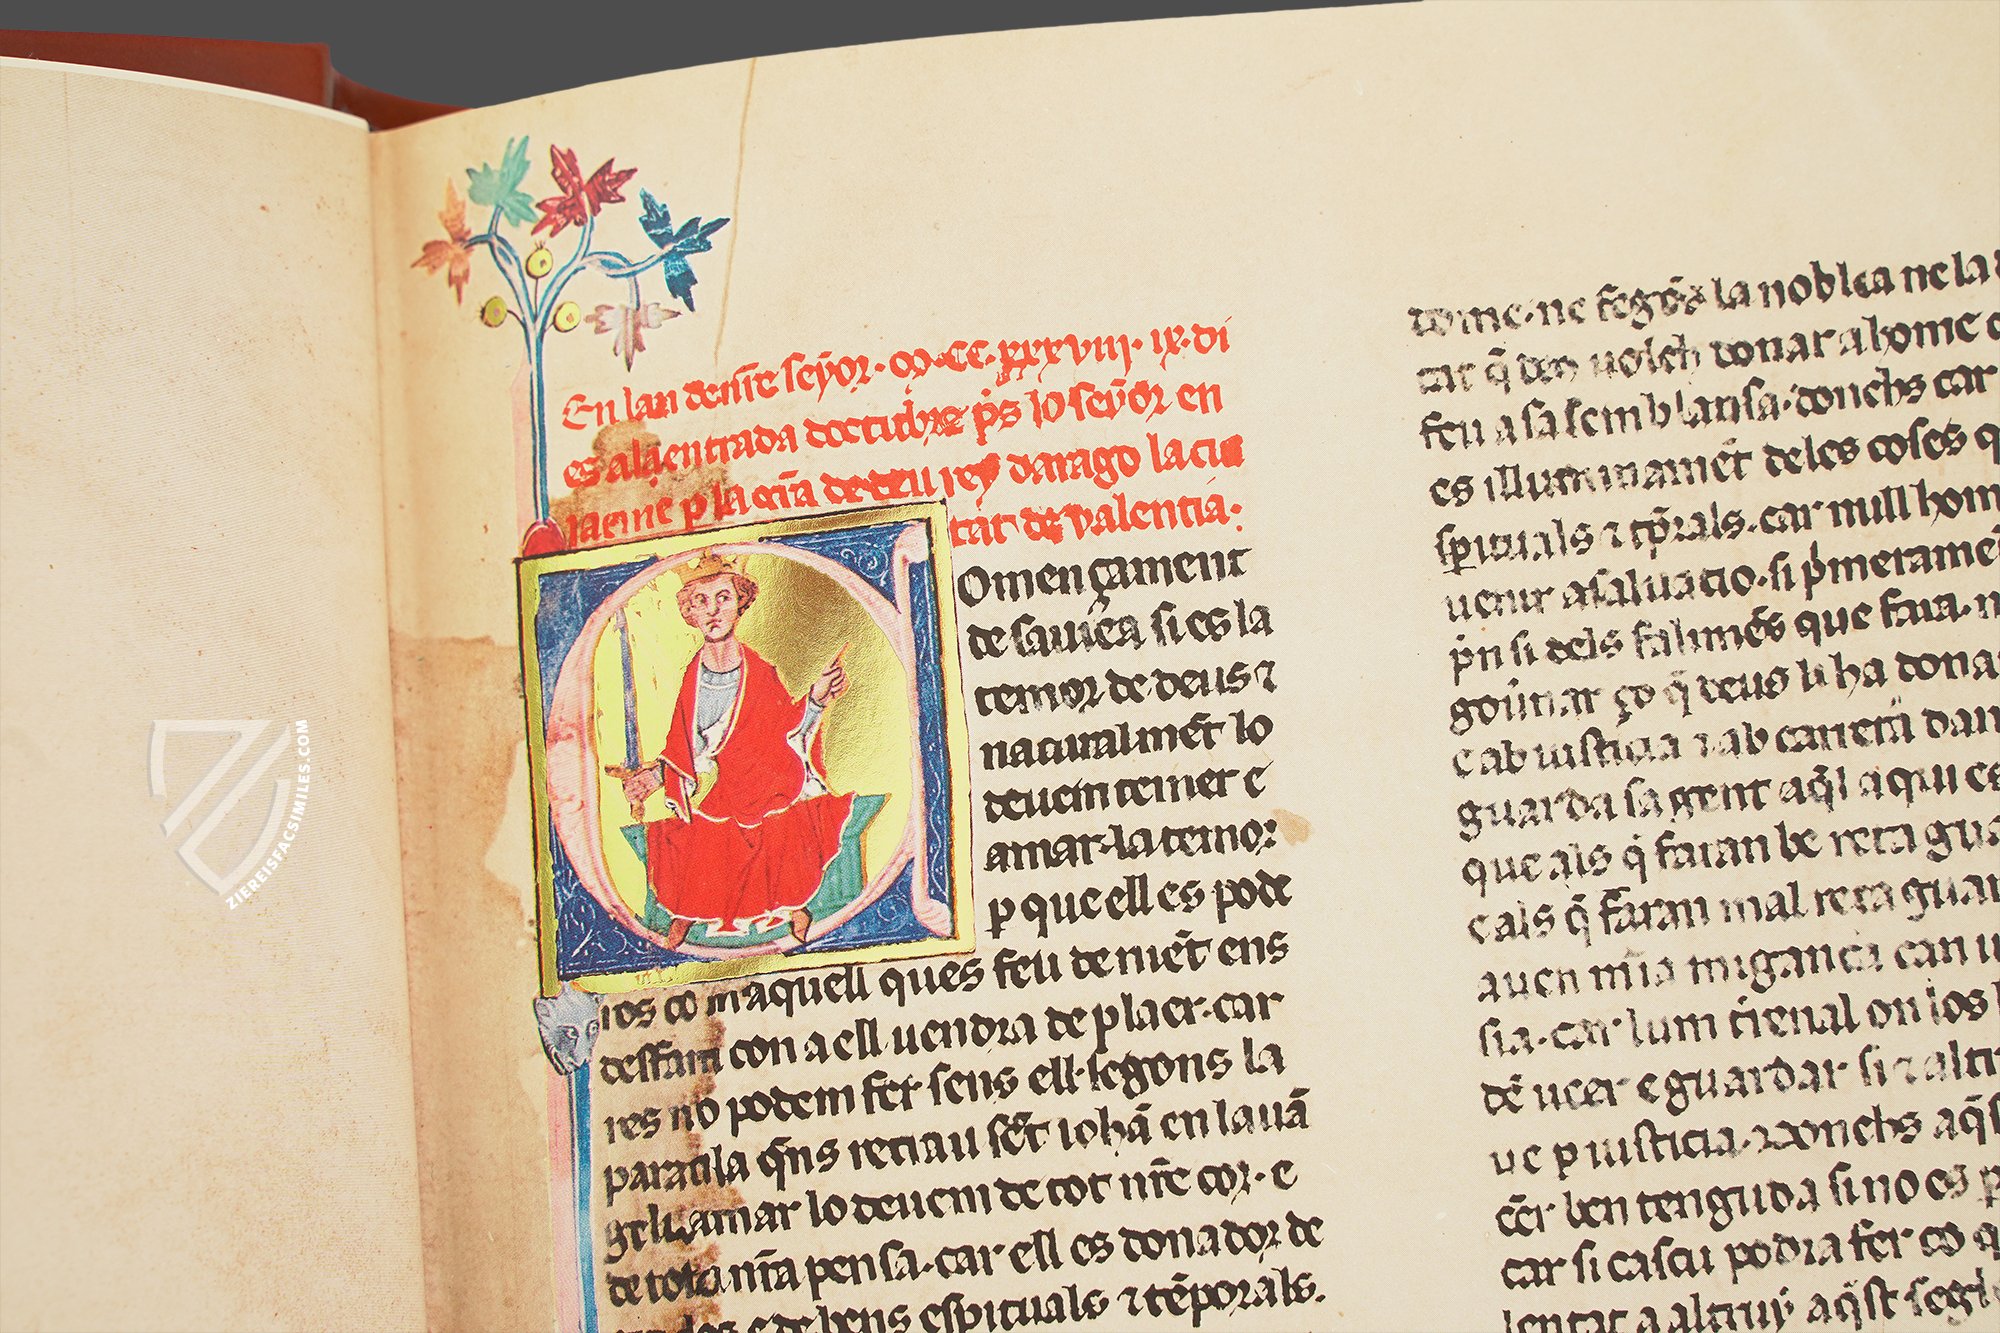 En lan de nr̄e seỹor · M · CC · xxxviii · ix · di
es a la entrada doctubre p̄s lo seỹor en
iacme p la gr̄a de deu rey darago la ciu
tat de valentia:
Omençament
de sauiēa si es la
temor de deus ⁊
naturalmēt lo
deuem temer e
amar·la temor
ꝑ que ell es pode
ros co m aquell ques feu de niēt ens
desfara con a ell uendra de plaer·car
res no podem fer sens ell·segons la
paraula q̄ns retrau sēt iohā en lauā
geli·amar lo deuem de tot nr̄e cor·e
de tota nr̄a pensa·car ell es donador de
e de bens espirituals ⁊ tēporals.
tome·ne segōs la noblea ne la
tar q̄ deu uolch donar a home
feu a sa semblansa·donchs car
es illuminamēt de les coses q
sp̄ituals ⁊ tp̄rals·car mill hom
uenir a saluacio·si p̄meramē
p̄n si dels falimēs que faria·
gouernar ço q̄ deus li ha dona
e ab iusticia ⁊ ab caritat dan
guarda sa gent aq̄l a qui es
que als q̄ faran be reta gua
e als q̄ faran mal reta guar
auen mīa migançā can
sia·car lum tr̄enal on los
dē ucer e guardar si ⁊ altr
ue p iusticia·donchs aq̄s
cēr ben tenguda si no es p
car si cascu podria fer co q
lentat a altruy aq̄st segl
ZIEREISFACSIMILES.COM